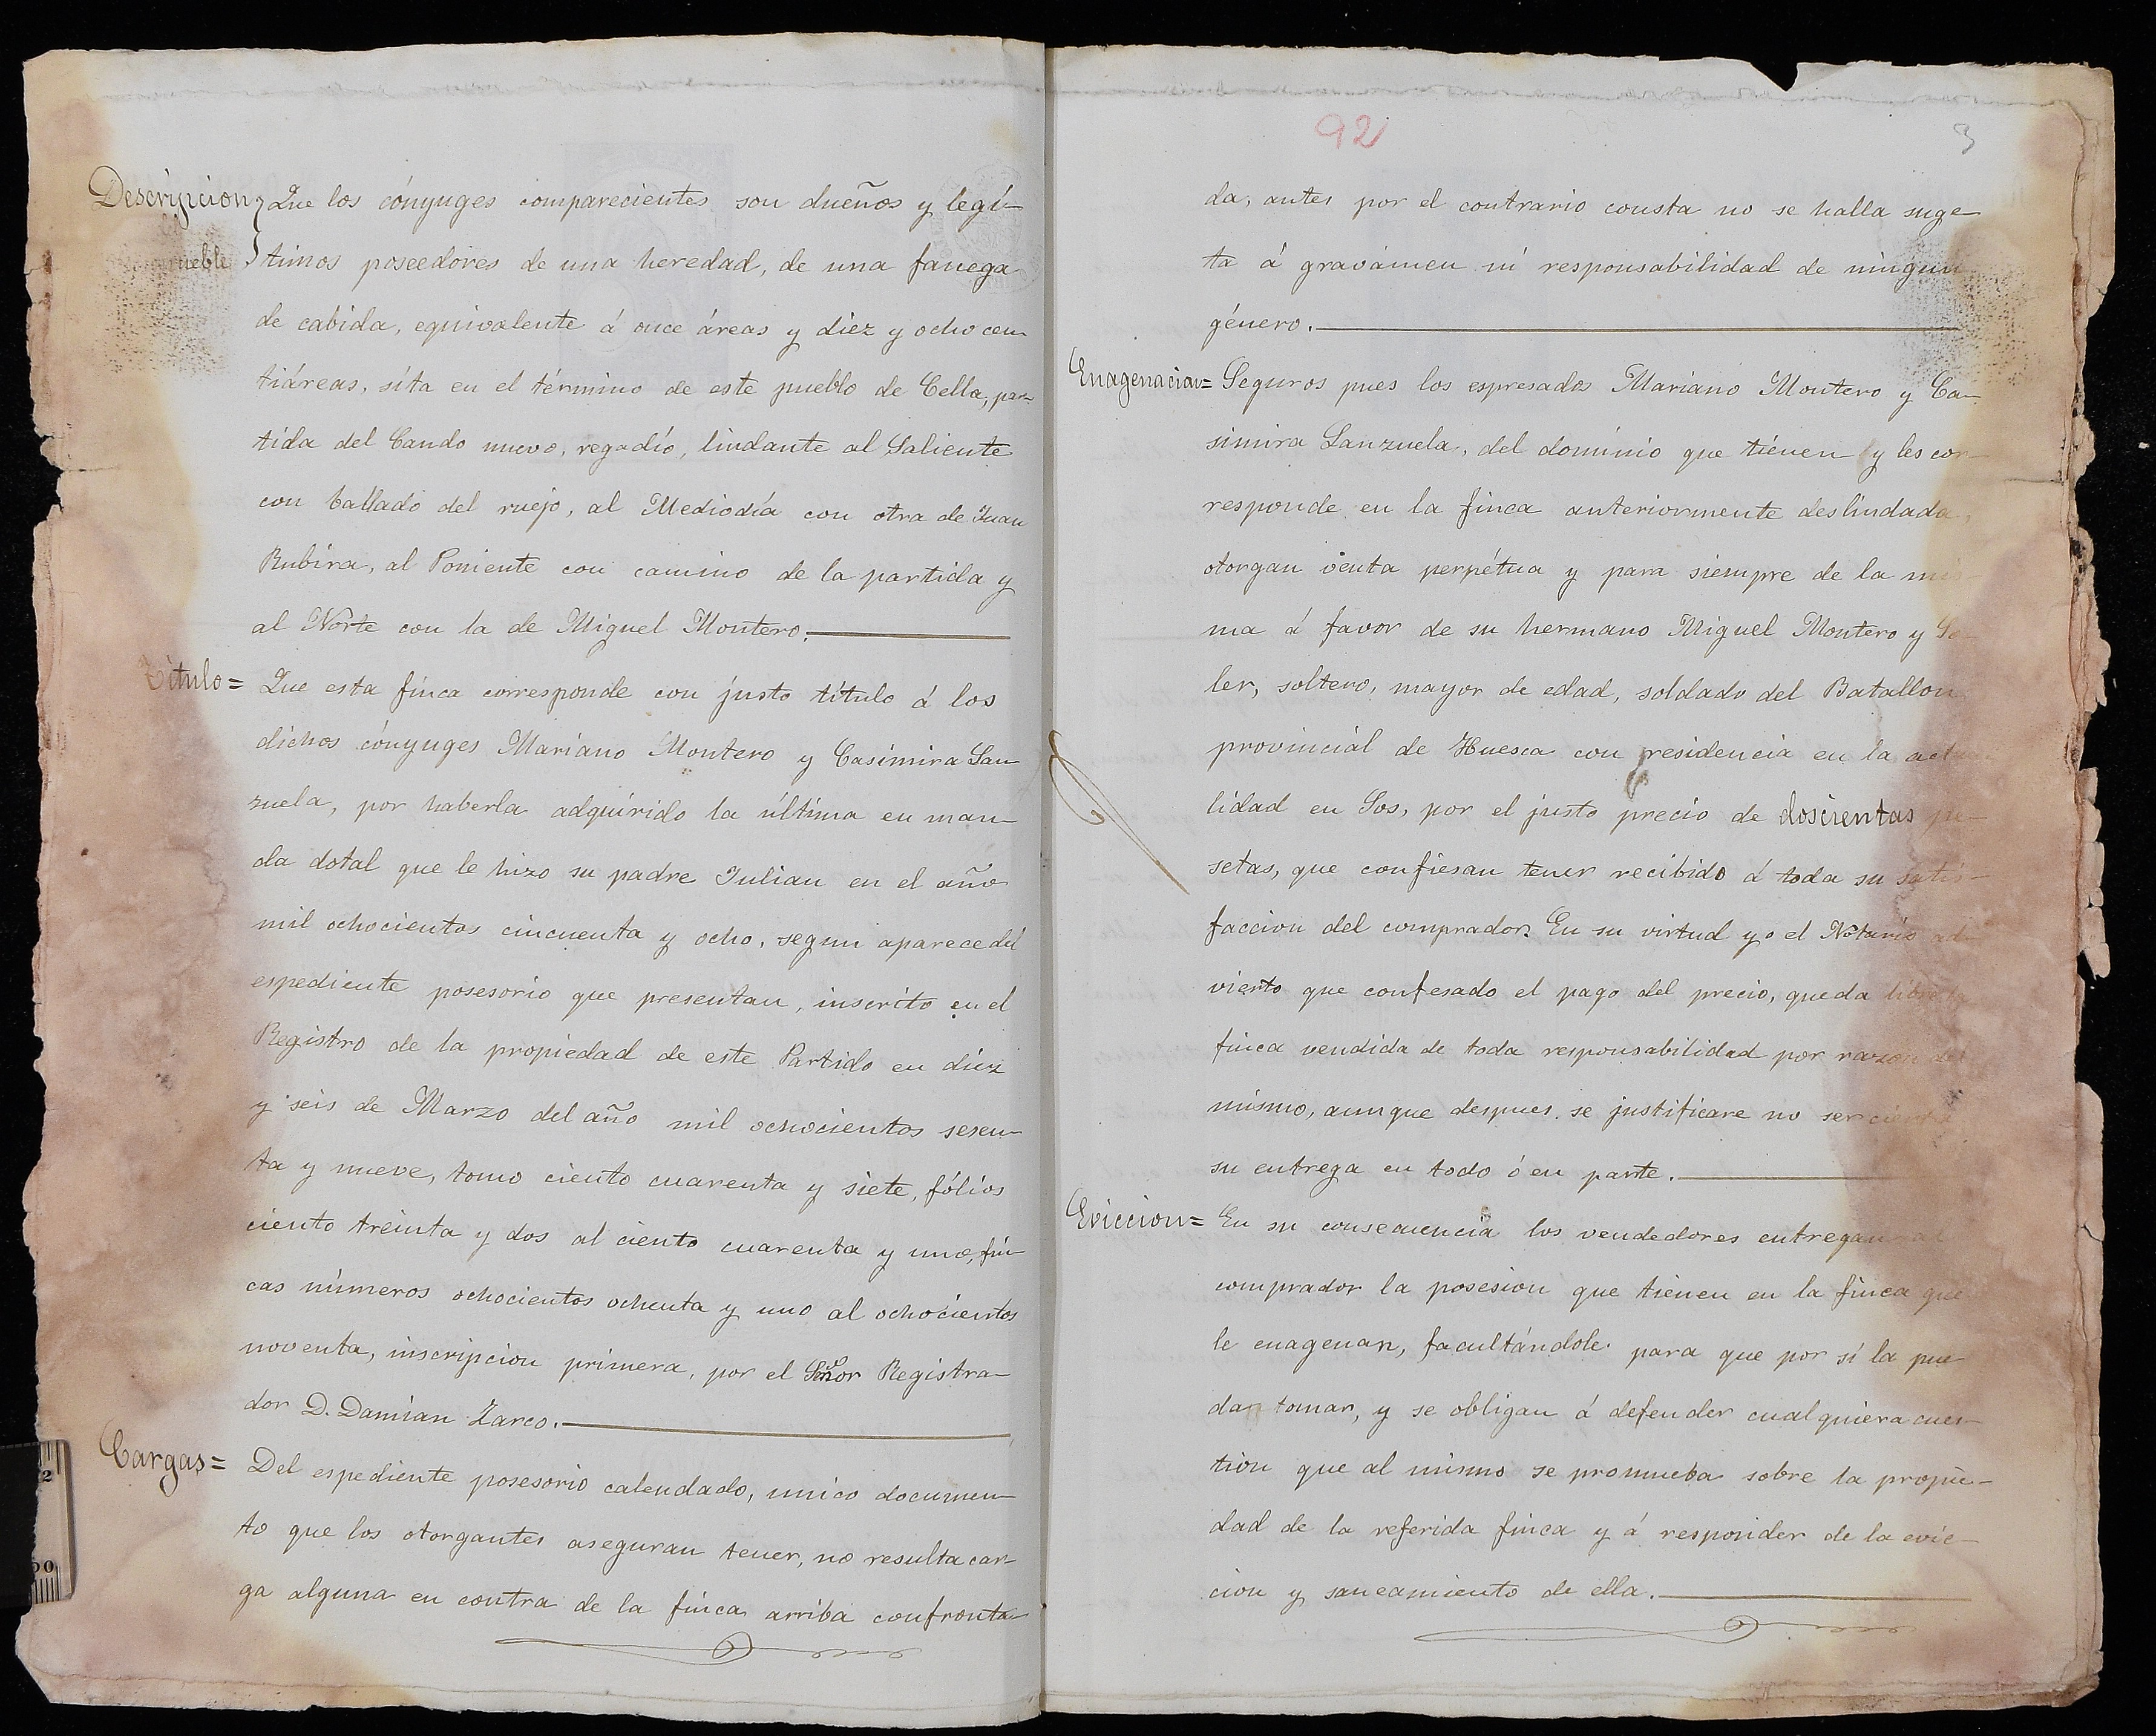 Descripcion } Que los cónyuges comparecientes son dueños y legí-
mueble } timos poseedores de una heredad, de una fanega
de cabida, equivalente á once áreas y diez y ocho cen-
tiáreas, síta en el término de este pueblo de Cella, par-
tida del Cando nuevo, regadío, lindante al Saliente
con ballado del ruejo, al Mediodía con otra de Juan
Rubira, al Poniente con camino de la partida y
al Norte con la de Miguel Montero.
Título= Que esta finca corresponde con justo título á los
dichos cónyuges Mariano Montero y Casimira Lan-
zuela, por haberla adquirido la última en man-
da dotal que le hizo su padre Julian en el año
mil ochocientos cincuenta y ocho, segun aparece del
espediente posesorio que presentan, inscrito en el
Registro de la propiedad de este Partido en diez
y seis de Marzo del año mil ochocientos sesen-
ta y nueve, tomo ciento cuarenta y siete, fólios
ciento treinta y dos al ciento cuarenta y uno, fin-
cas números ochocientos ochenta y uno al ochocientos
noventa, inscripcion primera, por el Señor Registra-
dor D. Damian Zarco.
Cargas= Del espediente posesorio calendado, unico documen-
to que los otorgantes aseguran tener, no resulta car-
ga alguna en contra de la finca arriba confronta-
92
3
da, antes por el contrario consta no se halla suge-
ta á gravámen ni responsabilidad de ningun
género.
Enagenacion= Seguros pues los espresados Mariano Montero y Ca-
simira Lanzuela, del dominio que tienen y les cor-
responde en la finca anteriormente deslindada,
otorgan venta perpétua y para siempre de la mis-
ma á favor de su hermano Miguel Montero y So-
ler, soltero, mayor de edad, soldado del Batallon
provincial de Huesca con residencia en la actua-
lidad en Sos, por el justo precio de doscientas pe-
setas, que confiesan tener recibido á toda su satis-
faccion del comprador. En su virtud yo el Notario ad-
vierto que confesado el pago del precio, queda libre la
finca vendida de toda responsabilidad por razon del
mismo, aunque despues se justificare no ser cierta
su entrega en todo ó en parte.
Eviccion= En su consecuencia los vendedores entregan al
comprador la posesion que tienen en la finca que
le enagenan, facultándole para que por sí la pue-
dan tomar, y se obligan á defender cualquiera cues-
tion que al mismo se promueba sobre la propie-
dad de la referida finca y á responder de la evic-
cion y saneamiento de ella.